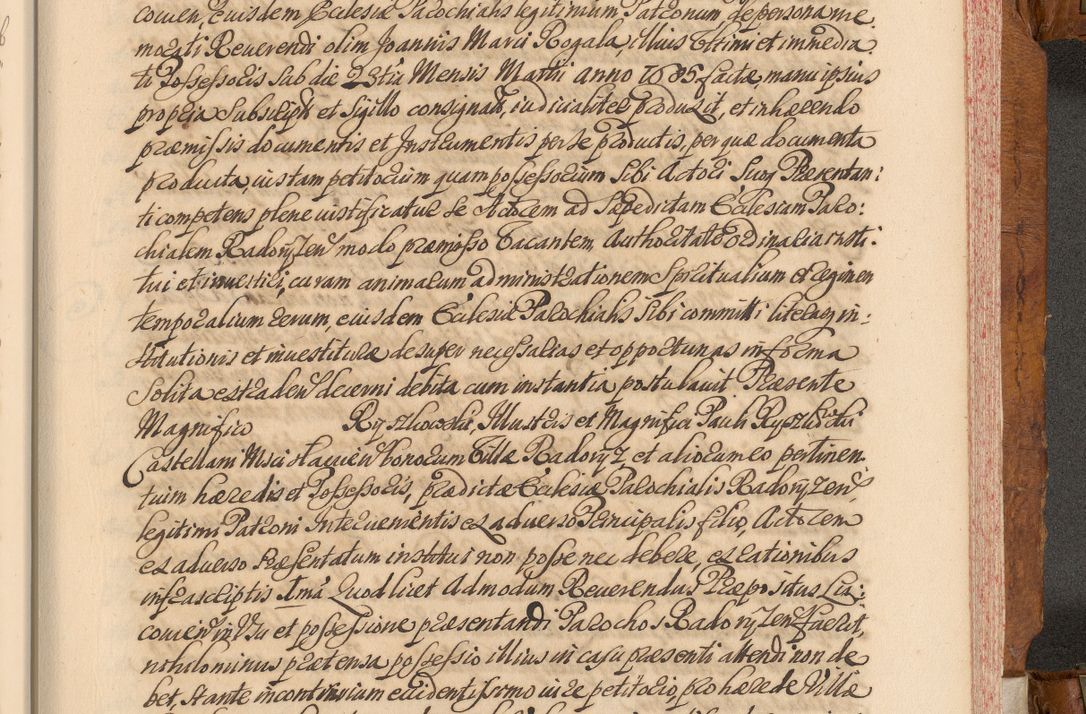 covien, eiusdem Ecclesiæ Parochialis legitimum Patronum, de persona me
morati Reverendi olim Joannis Marci Rogala, illius ultimi et immedia
ti Possessoris sub die 23tia Mensis Martii anno 1685 factæ, manu ipsius
propria subscript et Sigillo consignat, iudicialiter produxit, et inhærendo
præmissis documentis et Instrumentis per se productis, per quæ documenta
producta, ius tam petitorium quam possessorium sibi Actori suoq Præsentan:
ti competens plene iustificatur se Actorem ad Sæpedictam Ecclesiam Paro:
chialem Radoryzen modo præmisso vacantem Authoritate ordinaria insti:
tui et investiri, curam animarum administrationem Spiritualium et regimen
temporalium rerum, eiusdem Ecclesiæ Parochialis sibi committi literasq in:
stitutionis et investituræ desuper necessarias et opportunas in forma
solita extraden decerni debita cum instantia postulavit Præsente
Magnifico Ryszkowski, Illustris et Magnifici Pauli Ryszkowski
Castellani Mscislavien bonorum Villæ Radoryz et aliorum eo pertinen
tium hæredis et Possessoris, prædictæ Ecclesiæ Parochialis Radoryzen
legitimi Patroni Intervenientis ex adverso Principalis filio, Actorem
ex adverso præsentatum institui non posse nec debere, ex rationibus
infrascriptis Imã Quod licet Admodum Reverendus Præpositus Lu:
covien in usu et possessione præsentandi Parochos Radoryzen fuerit,
nihilominus prætensa possessio illius in casu præsenti attendi non de
bet, stante in contrarium evidentissimo iure petitorio, pro hærede Villæ